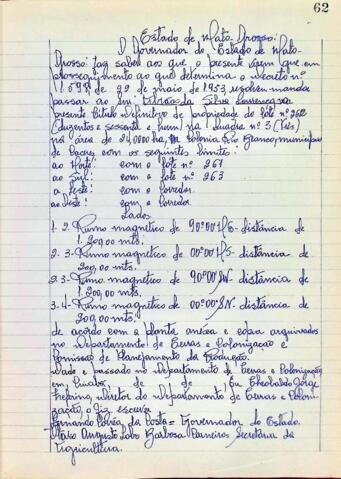 62
Estado de Mato-Grosso:
O Governador do Estado de Mato-
Grosso: faz saber aos que o presente virem que em
prosseguimento ao que determina o decreto nº
1.598 de 22 de maio de 1953 resolveu manda
passar ao Snr. da Silva
presente título Definitivo de propriedade do lote nº 262
(duzentos e sessenta e hum) na quadra nº 3 (três)
na área de ha, na Colonia Rio Branco, município
de Caceres com os seguintes limites:
ao Norte: com o lote nº 261
ao Sul: com o lote nº 263
a Leste: com o corredor
ao Oeste: com o corredor
Lados
1-2-Rumo magnético de 90º00' - distância de
1.200,00 mts.
2-3-Rumo magnético de 00º00' - distância de
200,00 mts.
2-3-Rumo magnético de 90º00' - distância de
1.200,00 mts.
3-4-Rumo magnético de 00º00' - distância de
200,00 mts.
de acordo com a planta anéxa e copia arquivados
no Departamento de Terras e Colonização e
Comissão de Planejamento da Produção.
Dado e passado no Departamento de Terras e Colonização
em Cuiabá, de de Eu Theobaldo Jorge
Diretor do Departamento de Terras e Coloni-
zação, o fiz escrever
Fernando Corrêa da Costa = Governador do Estado.
Mário Augusto Lobo Barbosa Carneiro Secretário da
Agricultura.